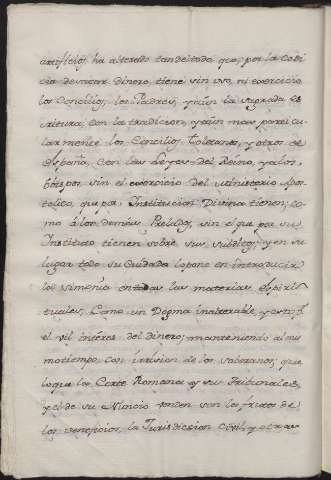 artificios, ha alterado tan del todo que, por la Codi
cia de sacar dinero tiene sin uso, ni exercicio
los Concilios, los Padres, y aun la sagrada es
critura, con la tradicion, y aun mas particu
larmente los Concilios Toletanos, y otros de
España, con las Leyes del Reino, y a los ôb
pos, sin el exercicio del ministerio Apos
tolico, que por Institucion Divina tienen; co
mo á los demás Prelados, sin el que por su
Instituto tienen sobre sus subditos; y en su
lugar todo su Cuidado lo pone en introducir
la simonia en las materias Espiri
tuales, Como un Dogma inalterable, y
el vil interes del dinero; manteniendo al mis
mo tiempo, con irrision de los soberanos, que
lo que la Corte Romana y sus Tribunales,
y el de su Nuncio venden son los frutos de
los beneficios, la Jurisdiccion Civil, y otras